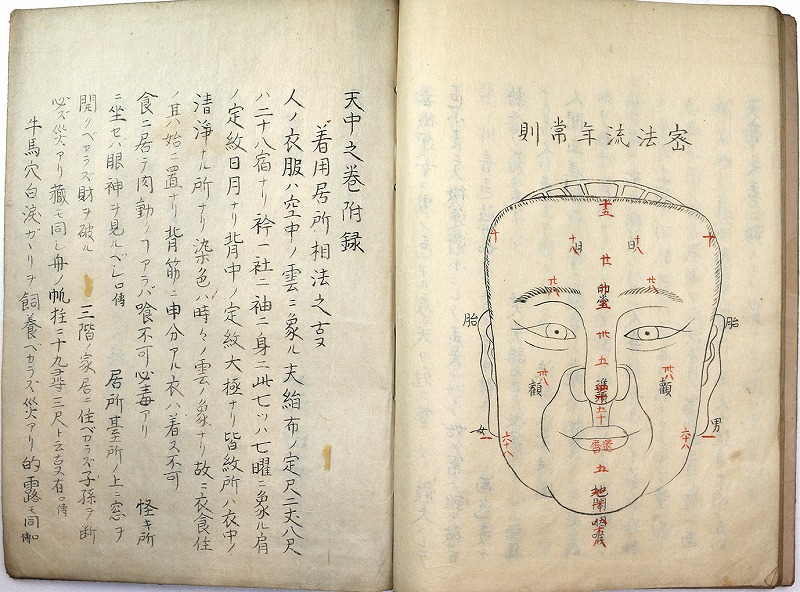 密法流年常則
十五
十
十
十八
日
日
廿
廿八
廿八
印堂
卅
五
卅八
卅八
顴
顴
準頭
五十
胎
胎
男
女
一
一
六十八
六十八
五
地閣
天中之巻附録
着用居所相法之古㕝
人ノ衣服ハ空中ノ雲ニ象ル夫絈布ノ定尺二丈八尺
ハ二十八宿ナリ衿一社二袖二身二此七ツハ七曜ニ象ル肩
ノ定紋日月ナリ背中ノ定紋大極ナリ皆紋所ハ衣中ノ
清淨ナル所ナリ染色ハ時々ノ雲ノ象ナリ故ニ衣食住
ノ其始ニ置ナリ背筋ニ申分アル衣ハ着ス不可
食ニ居テ肉動クヿアラバ喰不可必毒アリ 怪キ所
ニ坐セハ眼神ヲ見ルベシ口傳 居所基所ノ上ニ窓ヲ
開クベカラズ財ヲ破ル 三階ノ家居ニ住ベカラズ子孫ヲ断
必ズ災アリ藏モ同シ舟ノ帆拄二十九尋三尺ト云㕝有口傳
牛馬穴白淚ガヽリヲ飼養ベカラズ災アリ的露モ同口傳